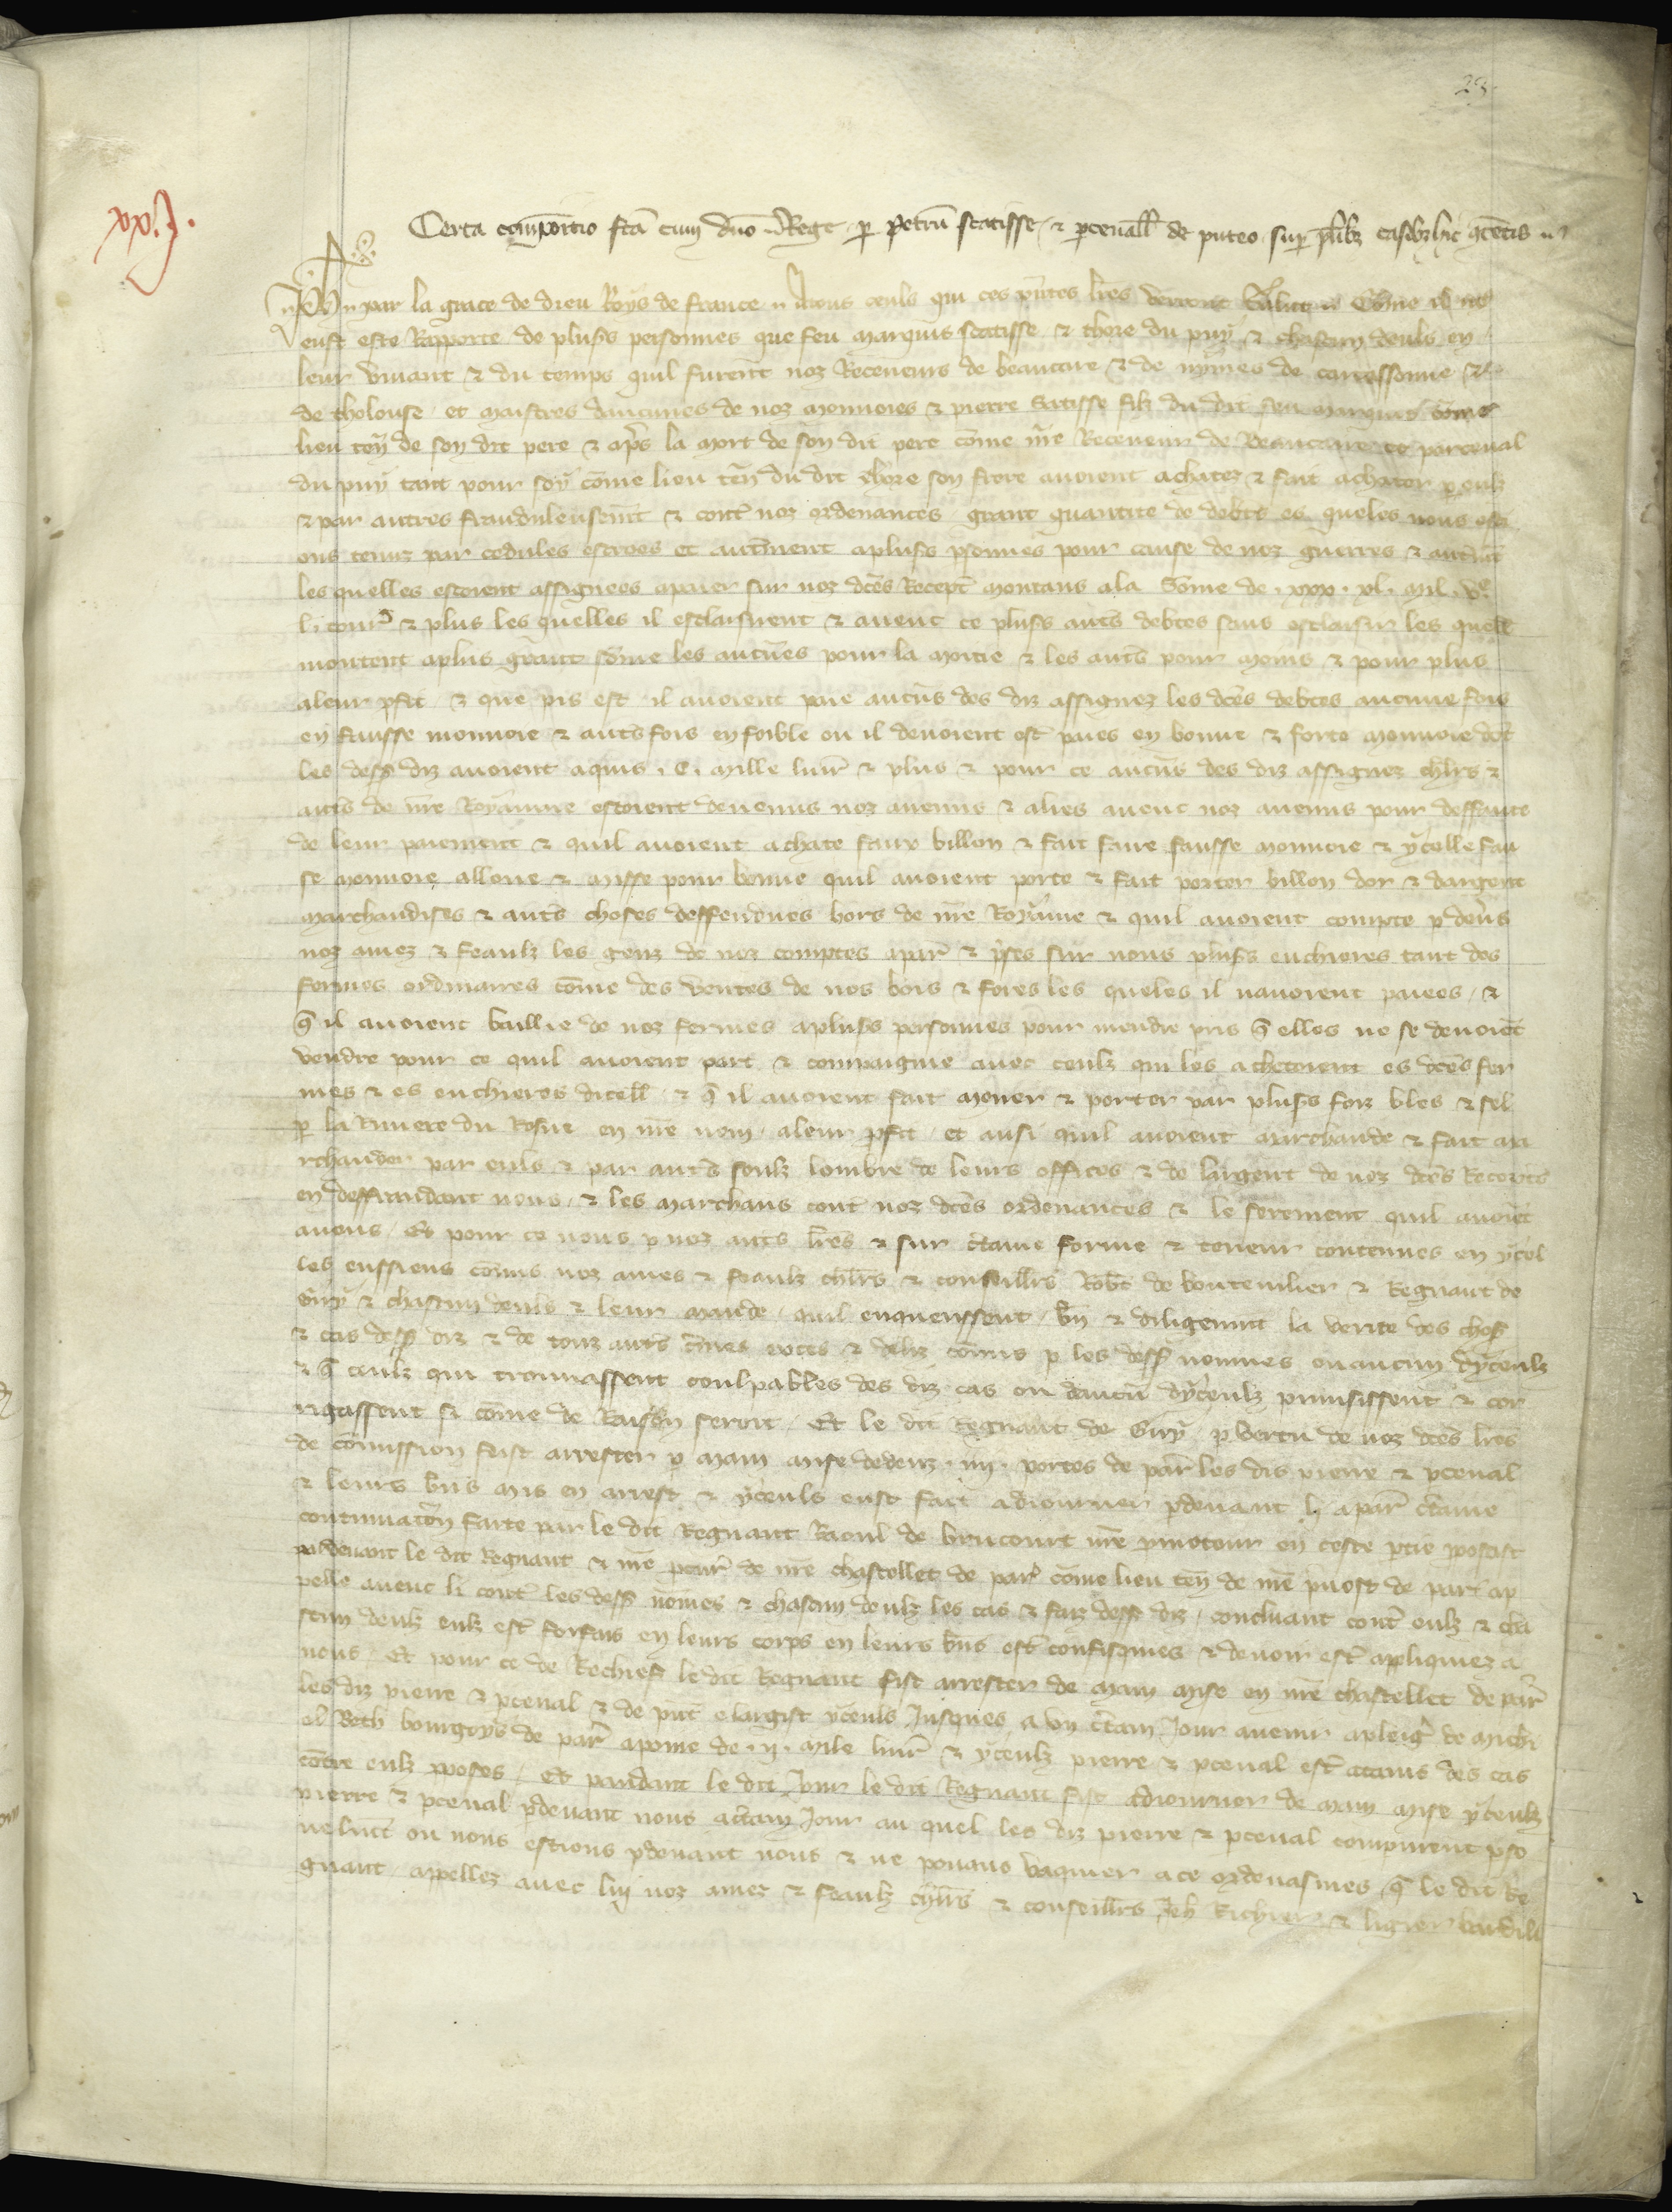 29
xx.j.
Certa compõtio fcã cum dño Rege p Petrũ scatisse & pcevall de puteo sup plibz casibz hic gtẽtis
Jeh par la grace de dieu Roys de france A tous ceuls qui ces pñtes lres verront Salut Cõme il nos
eust este Rapporte de plus's personnes que feu Marquis scatisse & thore du puy & chascun deuls en
leur vivant & du temps quil furent noz Receveurs de beaucaire & de nymes de carcassonne &
de tholouse et maistres daucunes de noz monnoies & pierre Scatisse filz du dit feu marquis cõme
lieu teñ de son dit pere & aps la mort de son dit pere cõme nre Receveur de Beaucaire et parceval
du puy tant pour soy cõme lieu teñ du dit thore son frere avoient achatez & fait achater p eulz
& par autres fraudulensemt & cont noz ordenances grant quantite de debts es queles nous esti
ons tenuz par cedules escroes et autrement a plus's psonnes pour cause de noz guerres & autmt
les quelles estoient assignees a paier sur noz dces Recept montans a la Sõme de . xxx . xl . mil . vc
l. tourn & plus les quelles il esclaisirent & avent ce plus's auts debtes sans esclaisir les quell
montent a plus grant sõme les aucũes pour la moitie & les auts pour moins & pour plus
a leur pfit & que pis est il avoient paie aucũs des diz assignez les dces debtes aucune fois
en fausse monnoie & auts fois en foible ou il devoient est paies en bonne & forte monnoie dõt
les dess diz avoient aquis . C . mille livr & plus & pour ce aucũs des diz assignez chlrs &
auts de nre Royaume estoient devenus noz anemis & alies avenc noz anemis pour deffaute
de leur paiement & quil avoient achate faux billon & fait faire fausse monnoie & ycelle fau
se monnoie alloue & misse pour bonne quil avoient porte & fait porter billon dor & dargent
marchandises & auts choses deffendues hors de nre Royaume & quil avoient compte p devs
noz amez & feaulz les genz de noz comptes a par & pses sur nous plus's enchieres tant des
fermes ordinaires cõme des ventes de nos bois & fores les queles il navoient paiees / &
q il avoient baillie de noz fermes a plus's personnes pour mendre pris q elles ne se devoiẽt
vendre pour ce quil avoient part & compaignie avec ceulz qui les achetoient es dces fer
mes & es enchieres dicell & q il avoient fait mener & porter par plus's foiz bles & sel
p la Riviere du Rosne en nre nom a leur pfit et ausi quil avoient marchande & fait ma
rchander par euls & par auts soulz lombre de leurs offices & de largent de noz dces Receptes
en deffraudant nous & les marchans cont noz dces ordenances & le serement quil avoiẽt
a nous / Et pour ce nous p noz auts lres & sur ctaine forme & teneur contenues en ycel
les eussiens cõmis noz ames & feaulz chlrs & consaillrs Robt de bouteuilier & Regnaut de
Giry & chascun deuls & leur mande quil enquerissent bñ & diligenmt la verite des chos
& cas dess diz & de touz auts cmes exces & deliz cõmis p les dess nommes ou aucun dyceulz
& q ceulz qui trouvassent coulpables des diz cas ou daucũ dyceulz punisissent & cor
rigassent si cõme de Raison seroit / Et le dit Regnaut de Giry p vertu de noz dces lres
de cõmission feist arrester p main mise dedenz . iiij . portes de par les dis pierre & pceval
& leurs bñs mis en arrest & yceuls eust fait adiourner p devant li a par ctaine
continuaciõn faite par le dit Regnaut Raoul de brucourt nre pmoteur en ceste ptie proposast
p devant le dit Regnaut & nre pcur de nre chastellet de par cõme lieu teñ de nre pvost de par ap
pelle avenc li cont les dess nõmes & chascun deulz les cas & faiz dess diz concluant cont eulz & cha
scun deulz eulz est forfais en leurs corps en leurs bñs est confisquies & devoir est apliquiez a
nous / Et pour ce de Rechief le dit Regnaut fist arrester de main mise en nre chastellet de par
les diz pierre & pceval & de puis elargist yceuls Jusques a un ctain Jour avenir a pleige de mich
el Beth bourgoys de par a poine de . ij . mile livr & yceulz pierre & pceval est attains des cas
cõtre eulz pposes / Et pendant le dit Jour le dit Regnaut fist adiourner de main mise yceulz
pierre & pceval p devant nous a ctain Jour au quel les diz pierre & pceval comparirent pso
nelmt ou nous estions p devant nous & ne povans vaquier a ce ordenasmes q le dit Re
gnaut appellez avec luy noz amez & feaulz chlrs & conseillrs Jeh Richier & ligier bardill